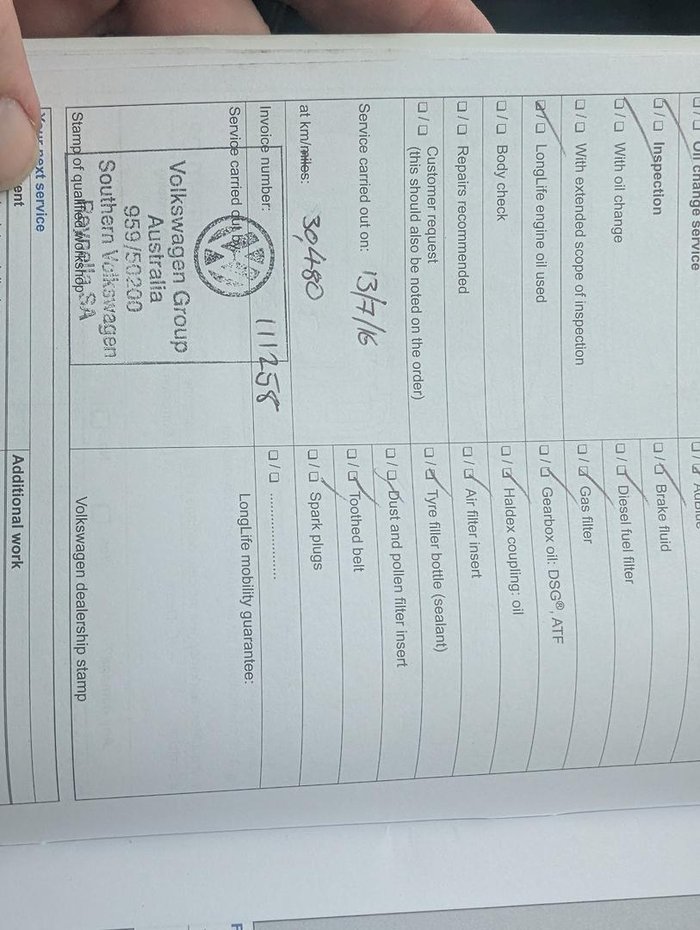 Oil change service
Inspection
With oil change
With extended scope of inspection
LongLife engine oil used
Body check
Repairs recommended
Customer request
(this should also be noted on the order)
Service carried out on: 13/7/16
at km/miles: 30,480
Invoice number: 111258
Service carried out by:
Volkswagen Group
Australia
959/50200
Southern Volkswagen
Reynella, SA
Stamp of qualified workshop
AdBlue
Brake fluid
Diesel fuel filter
Gas filter
Gearbox oil: DSG®, ATF
Haldex coupling: oil
Air filter insert
Tyre filler bottle (sealant)
Dust and pollen filter insert
Toothed belt
Spark plugs
.....................
LongLife mobility guarantee:
Volkswagen dealership stamp
Your next service
ent
Additional work